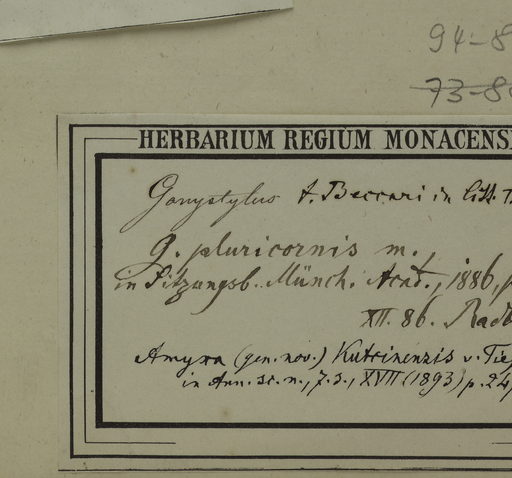 94-8
73-8
HERBARIUM REGIUM MONACENS
Gonystylus t. Beccari in litt.
G. pluricornis m.
in Sitzungsb. Münch. Acad., 1886,
XII. 86. Radl
Amyxa (gen. nov.) Kutcinensis v. Tieg
in Ann. sc. n., 7. s., XVII (1893) p. 24